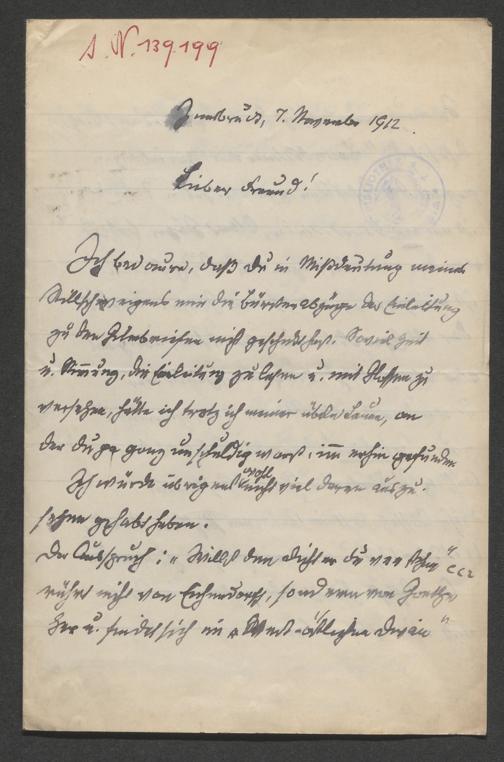 S. N. 139.199
Innsbruck, 7. November 1912.
Lieber Freund!
Ich bedaure, daß Du in Mißdeutung meines
Stillschweigens mir die Bürstenabzüge der Einleitung
zu den nicht geschickt hast. Soviel Zeit
u. Stimmung, die Einleitung zu lesen u. mit Glossen zu
versehen, hätte ich trotz meiner üblen Laune, an
der Du ja ganz unschuldig warst, immerhin gefunden.
Ich würde übrigens wohl nicht viel daran auszu-
setzen gehabt haben.
Der Ausspruch: „Willst den Dichter Du verstehn" etc
rührt nicht von Eichendorff, sondern von Goethe
her u. findet sich im „West-östlichen Divan"